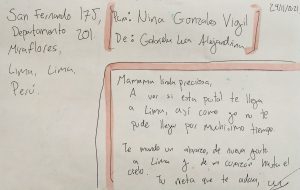 San Fernando 175,
Departamento 201.
Miraflores,
Lima, Lima,
Perú.
Para: Nina Gonzales Vigil
De: Gabriela Lea Alejandrina
Mamama linda preciosa,
A ver si esta postal te llega
a Lima, así como yo no te
pude llegar por muchísimo tiempo.
Te mando un abrazo, de nueva
a Lima y de mi corazón hasta el
cielo.
Tu nieta que te adora,